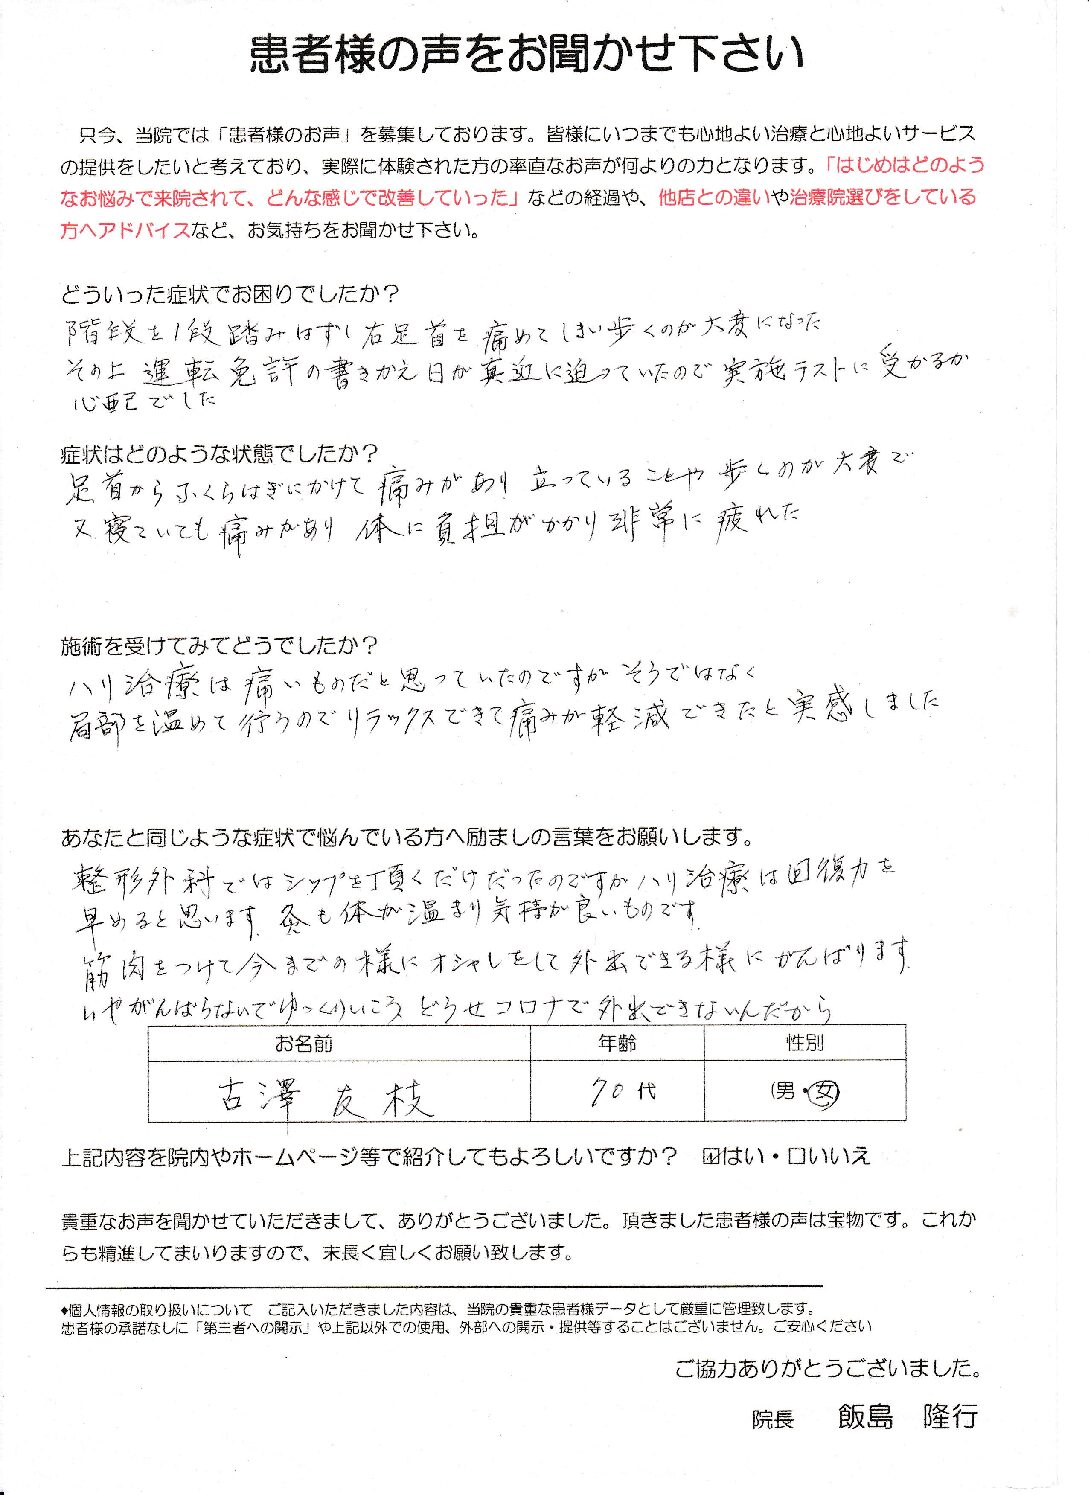 患者様の声をお聞かせ下さい
只今、当院では「患者様のお声」を募集しております。皆様にいつまでも心地よい治療と心地よいサービス
の提供をしたいと考えており、実際に体験された方の率直なお声が何よりの力となります。「はじめはどのよう
なお悩みで来院されて、どんな感じで改善していった」などの経過や、他店との違いや治療院選びをしている
方へアドバイスなど、お気持ちをお聞かせ下さい。
どういった症状でお困りでしたか?
階段を1段踏みはずし右足首を痛めてしまい歩くのが大変になった
その上運転免許の書きかえ日が真近に迫っていたので実施テストに受かるか
心配でした
症状はどのような状態でしたか?
足首からふくらはぎにかけて痛みがあり立っていることや歩くのが大変で
又寝ていても痛みがあり体に負担がかかり非常に疲れた
施術を受けてみてどうでしたか?
ハリ治療は痛いものだと思っていたのですがそうではなく
局部を温めて行うのでリラックスできて痛みが軽減できたと実感しました
あなたと同じような症状で悩んでいる方へ励ましの言葉をお願いします。
整形外科ではシップを頂くだけだったのですがハリ治療は回復力を
早めると思います。灸も体が温まり気持が良いものです。
筋肉をつけて今までの様にオシャレをして外出できる様にがんばります。
いやがんばらないでゆっくりいこう どうせコロナで外出できないんだから
お名前 年齢 性別
古澤友枝 70代 (男・女)
上記内容を院内やホームページ等で紹介してもよろしいですか? ☑はい・□いいえ
貴重なお声を聞かせていただきまして、ありがとうございました。頂きました患者様の声は宝物です。これか
らも精進してまいりますので、末長く宜しくお願い致します。
◆個人情報の取り扱いについて ご記入いただきました内容は、当院の貴重な患者様データとして厳重に管理致します。
患者様の承諾なしに「第三者への開示」や上記以外での使用、外部への開示・提供等することはございません。ご安心ください
ご協力ありがとうございました。
院長 飯島 隆行